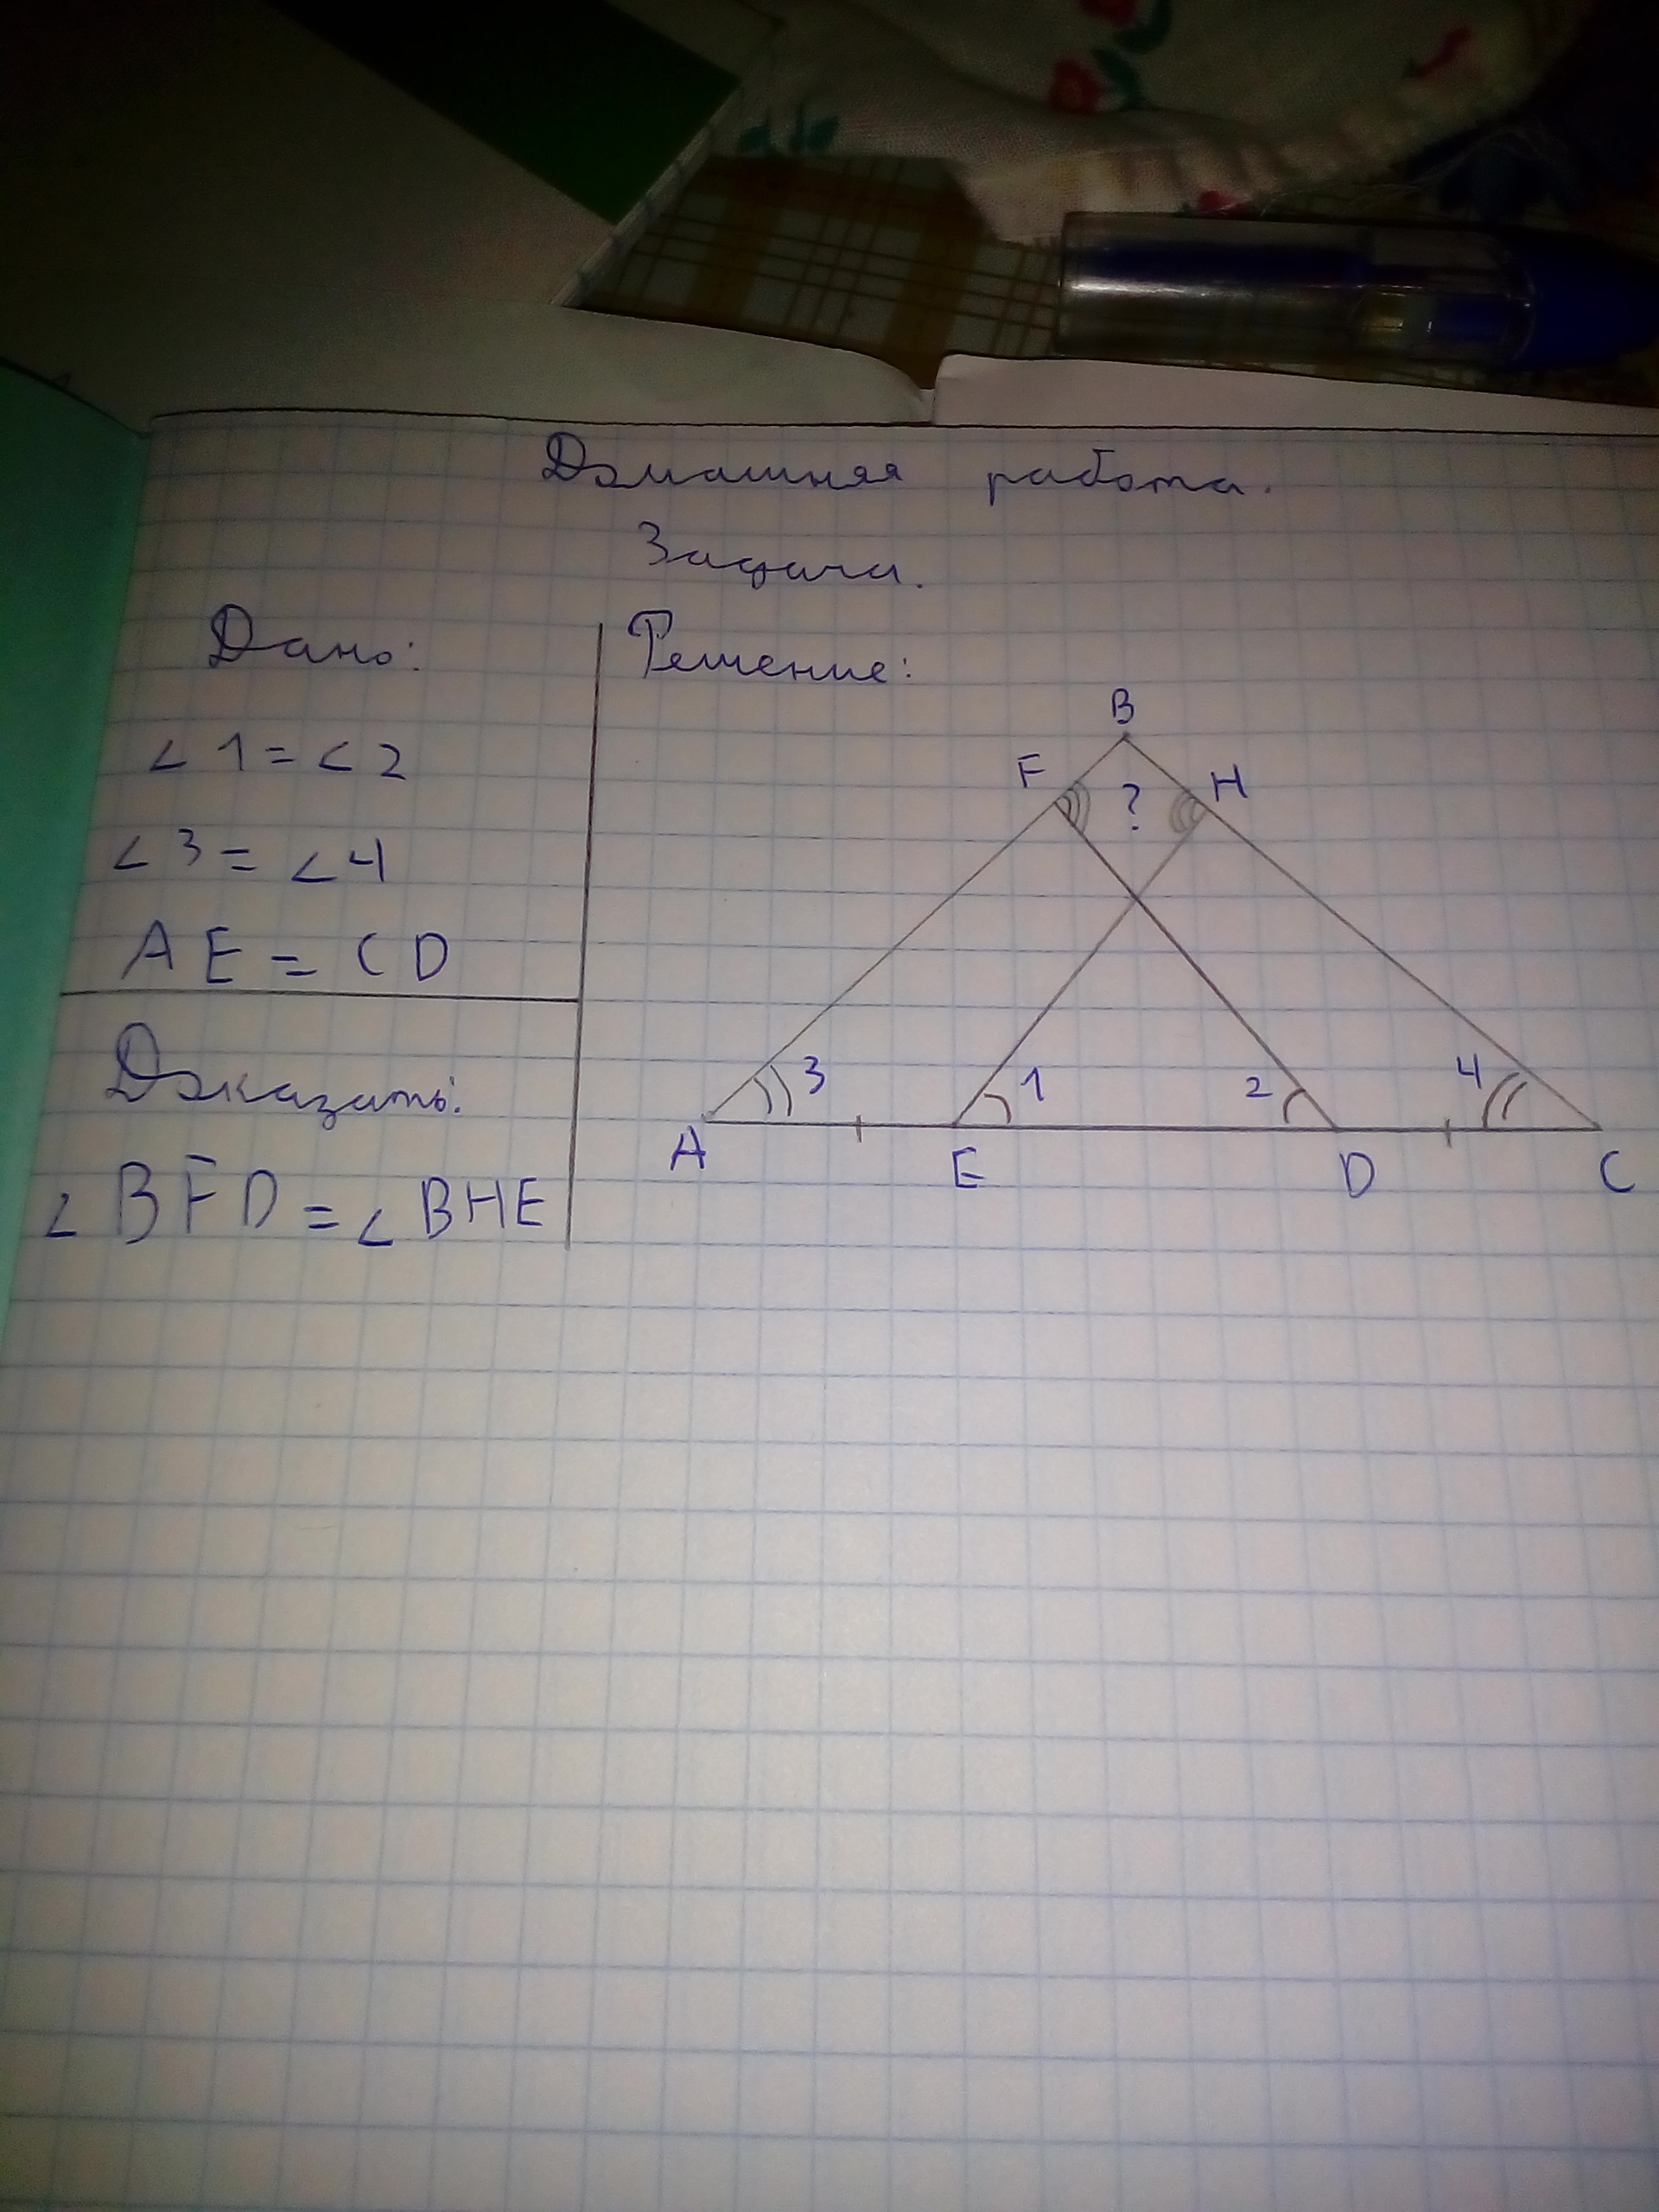 Домашняя работа.
Задача.
Дано:
∠1=∠2
∠3=∠4
AE=CD
Доказать:
∠BFD=∠BHE
Решение:
B
F
?
H
3
1
2
4
A
E
D
C